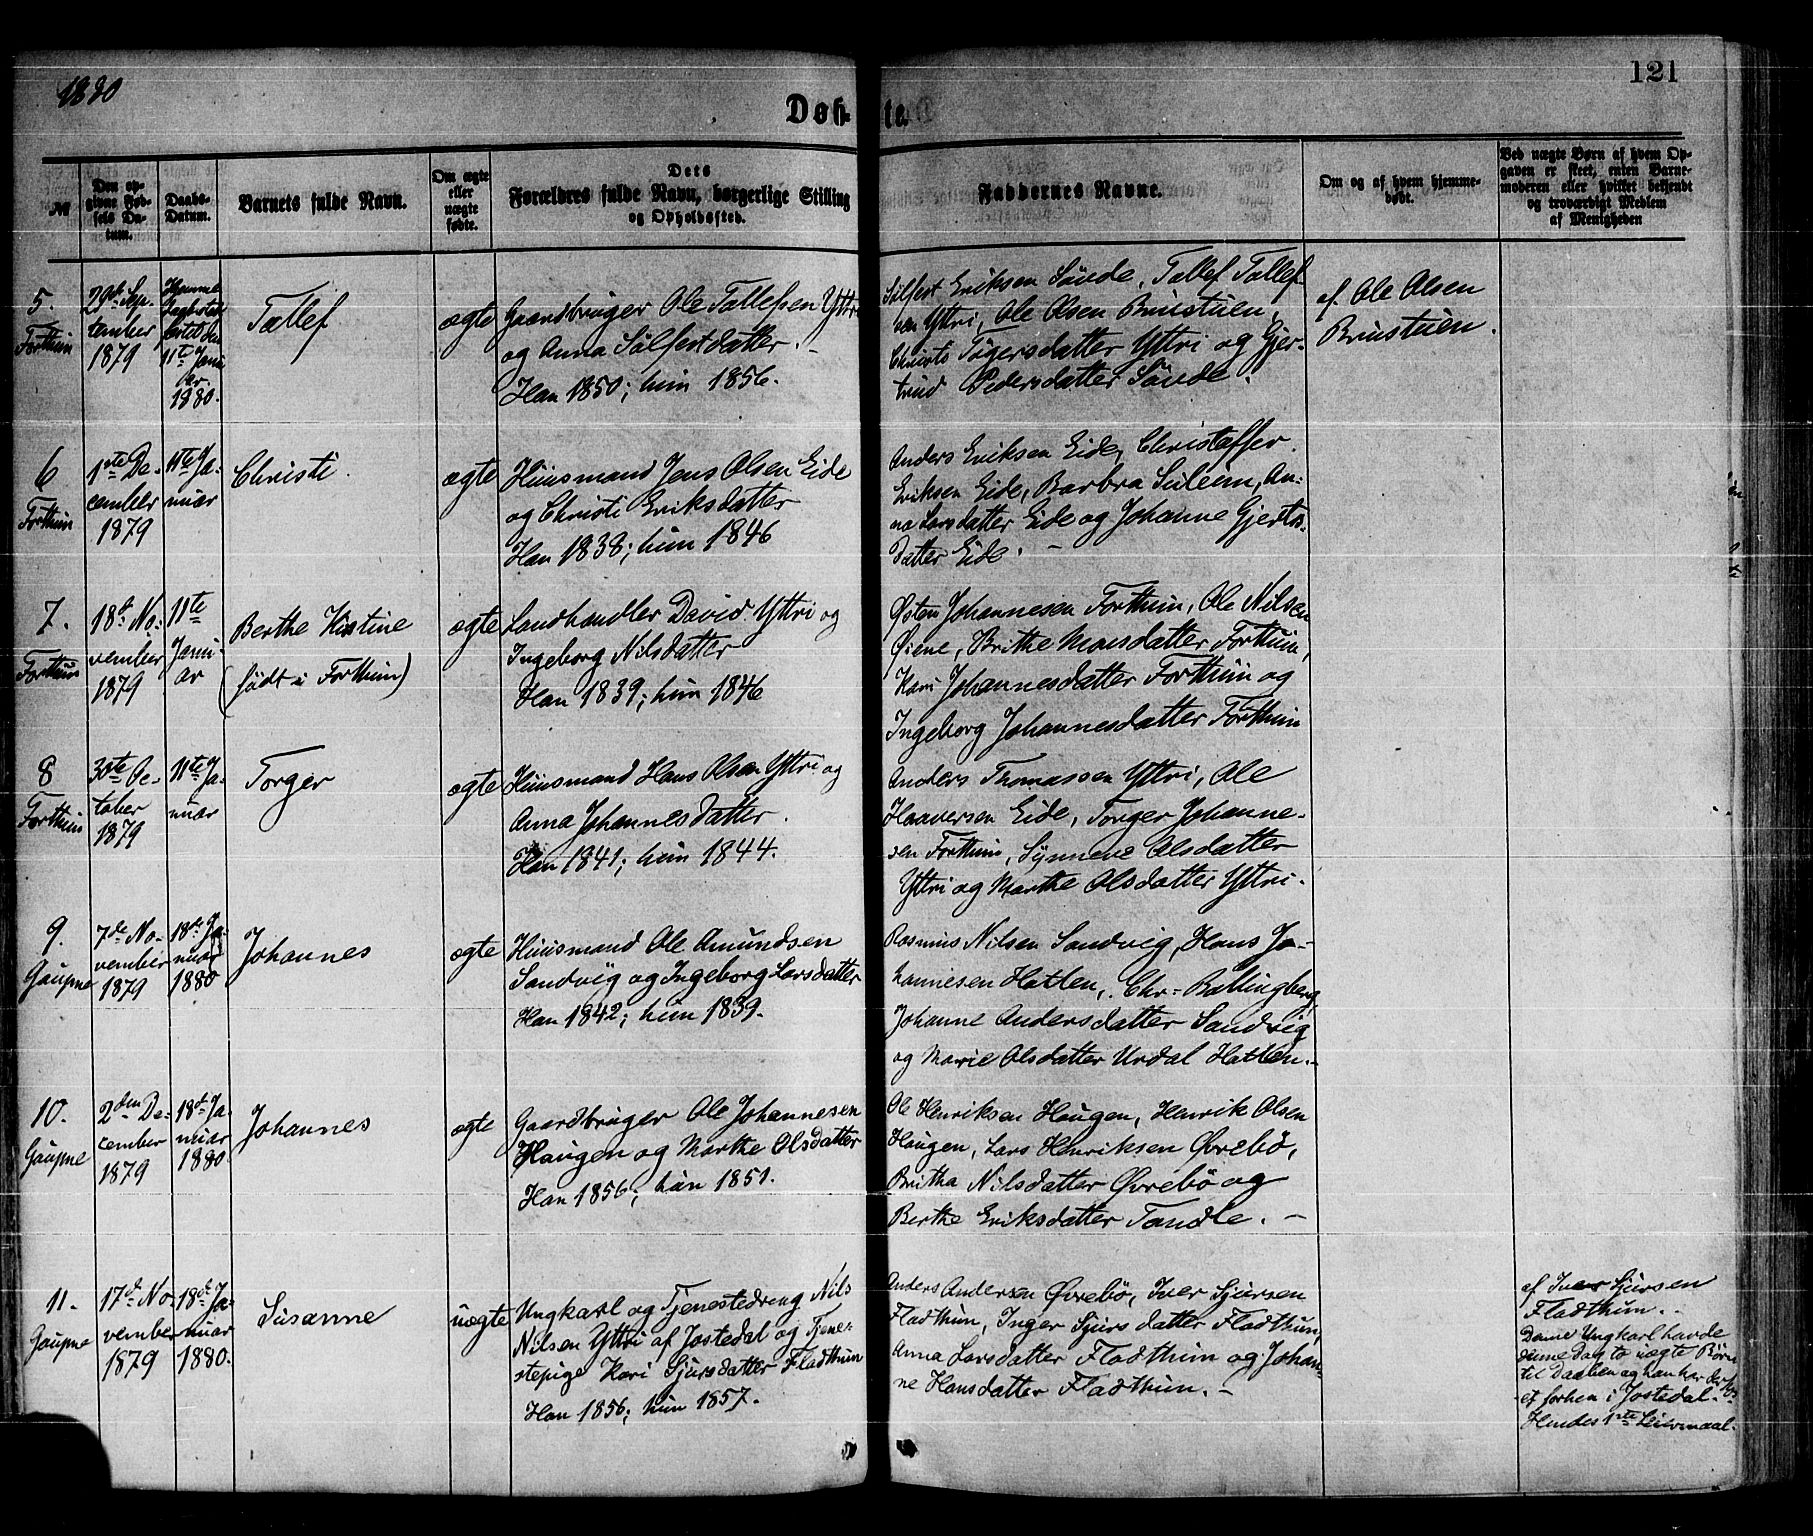 1880
121
Døb-
te.
№
Den op-
givne Fød-
sels Da-
tum.
Daabs-
Datum.
Barnets fulde Navn.
Om ægte
eller
uægte
fødte.
Dets
Forældres fulde Navn, borgerlige Stilling
og Opholdssted.
Faddernes Navne.
Om og af hvem hjemme-
døbt.
Ved uægte Børn af hvem Op-
gaven er skeet, enten Barne-
moderen eller hvilket bekjendt
og troværdigt Medlem
af Menigheden
5.
Forthun
29de Sep-
tember
1879
Hjemme
11te Janu
ar.
1880.
Tollef
ægte
Gaardbruger Ole Tollefsen Yttri
og Anna Sølfestdatter. -
Han 1850; hun 1856.
Sølfest Eriksen Sønde, Tollef Tollef-
sen Yttri, Ole Olsen Brustuen,
Christi Tøgersdatter Yttri og Gjer-
trud Pedersdatter Sønde.
af Ole Olsen
Brustuen.
6
Forthun
1ste De-
cember
1879
11te Ja-
nuar
Christi.
ægte
Huusmand Jens Olsen Eide
og Christi Eriksdatter
Han 1838; hun 1846
Anders Eriksen Eide, Christoffer
Eriksen Eide, Barbra Suleim, An-
na Larsdatter Eide og Johanne Gjerts-
datter Eide. -
7.
Forthun
18de No-
vember
1879
11te
Janu-
ar
Berthe Kristine
(født i Forthun)
ægte
Landhandler David Yttri og
Ingeborg Nilsdatter
Han 1839; hun 1846
Østen Johannesen Forthun, Ole Nilsen
Øiene, Brithe Monsdatter Forthun,
Kari Johannesdatter Forthun og
Ingeborg Johannesdatter Forthun
8
Forthun
30te Oc-
tober
1879
11te Ja-
nuar
Torger
ægte
Huusmand Hans Olsen Yttri og
Anna Johannesdatter.
Han 1841; hun 1844.
Anders Thomassen Yttri, Ole
Haaversen Eide, Torger Johanne-
sen Forthun, Synneve Olsdatter
Yttri og Marthe Olsdatter Yttri.
9.
Gaupne
7de No-
vember
1879
18de Ja-
nuar
1880
Johannes
ægte
Huusmand Ole Amundsen
Sandvig og Ingeborg Larsdatter
Han 1842; hun 1839.
Rasmus Nilsen Sandvig, Hans Jo-
hannesen Hatlen, Chr- Ballingberg,
Johanne Andersdatter Sandvig
og Marie Olsdatter Urdal Hatlen. -
10.
Gaupne
2den De-
cember
1879
18de Ja-
nuar
1880
Johannes
ægte
Gaardbruger Ole Johannesen
Haugen og Marthe Olsdatter
Han 1856; hun 1851.
Ole Henriksen Haugen, Henrik Olsen
Haugen, Lars Henriksen Øvrebø,
Britha Nilsdatter Øvrebø og
Berthe Eriksdatter Tandle. -
11.
Gaupne
17de No-
vember
1879
18de Ja-
nuar
1880.
Susanne
uægte
Ungkarl og Tjenestedreng Nils
Nilsen Yttri af Jostedal og Tjene-
stepige Kari Sjursdatter Fladthun
Han 1856; hun 1857.
Anders Andersen Øvrebø, Iver Sjursen
Fladthun, Inger Sjursdatter Fladthun,
Anna Larsdatter Fladthun og Johan-
ne Hansdatter Fladthun. -
af Iver Sjursen
Fladthun. -
Denne Ungkarl havde
denne dag to uægte Børn
til Daaben og han har
et forhen i Jostedal. -
Hendes 1ste Leiermaal.